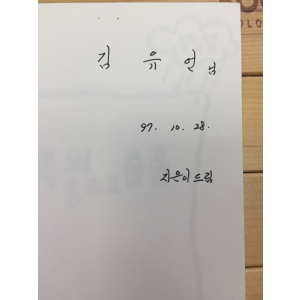 김 유 언 님
97. 10. 28.
지은이 드림